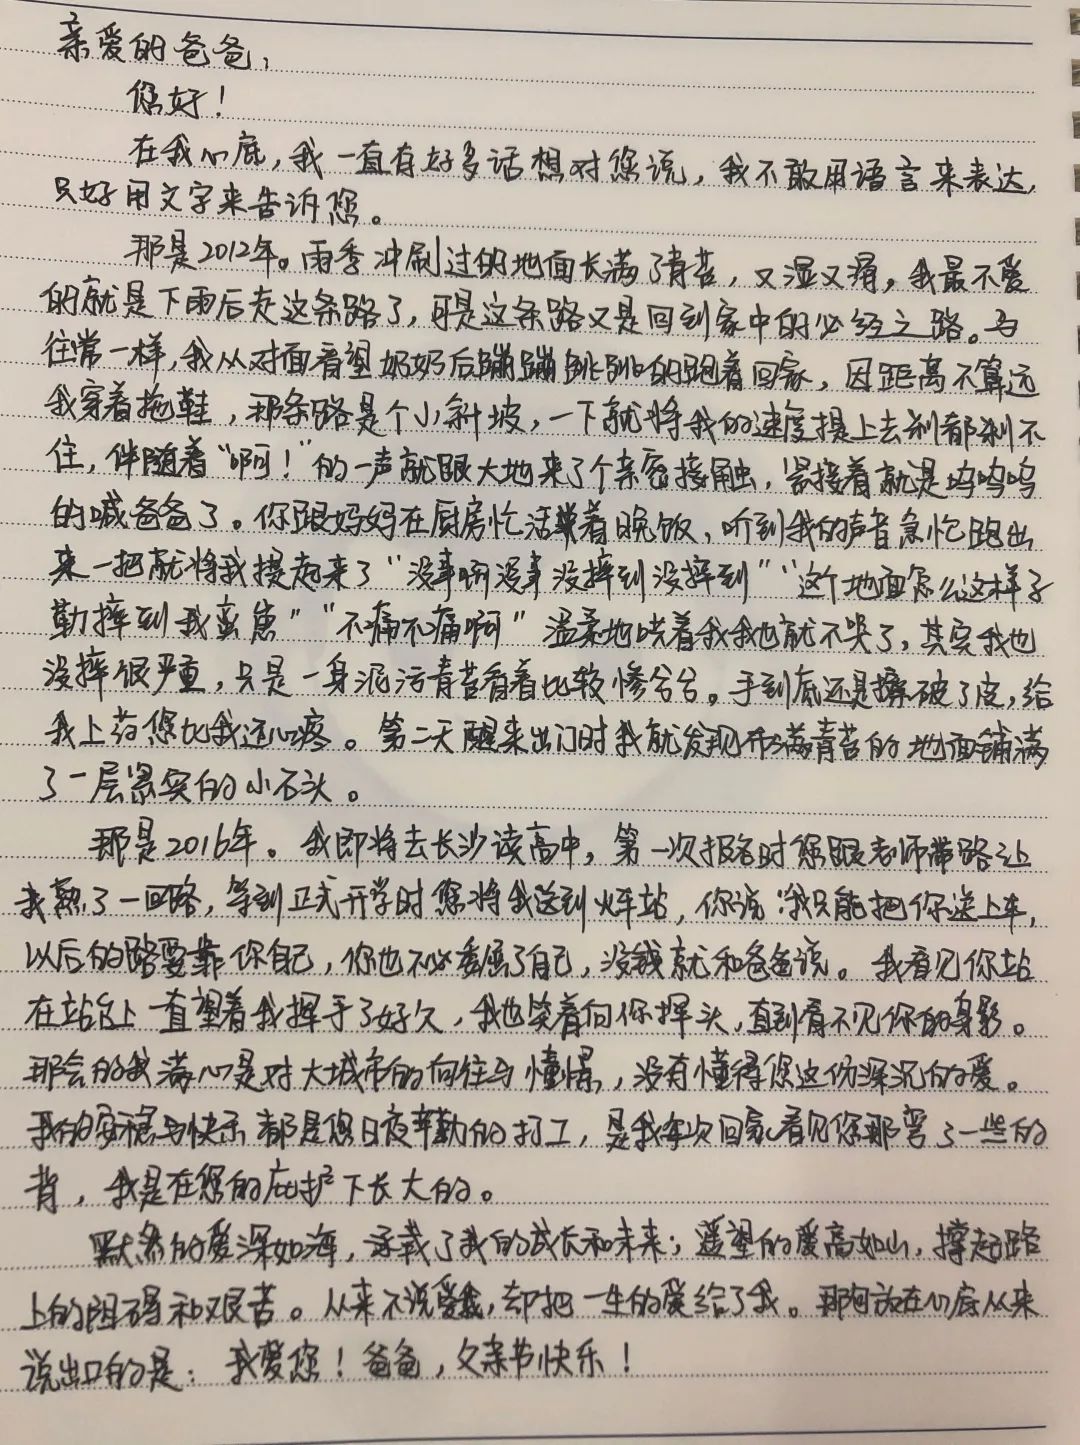 亲爱的爸爸，
您好！
在我心底，我一直有好多话想对您说，我不敢用语言来表达，
只好用文字来告诉您。
那是2012年。雨季冲刷过的地面长满了青苔，又湿又滑，我最不爱
的就是下雨后走这条路了，可是这条路又是回到家中的必经之路。与
往常一样，我从对面看望奶奶后蹦蹦跳跳的跑着回家，因距离不算远
我穿着拖鞋，那条路是个小斜坡，一下就将我的速度提上去刹都刹不
住，伴随着“啊！”的一声就跟大地来了个亲密接触，紧接着就是呜呜呜
的喊爸爸了。你跟妈妈在厨房忙活着晚饭，听到我的声音急忙跑出
来一把就将我提起来了“没事啊没事没摔到没摔到”“这个地面怎么这样子
勤摔到我崽”“不痛不痛啊”温柔地哄着我我也就不哭了，其实我也
没摔很严重，只是一身泥污青苔看着比较惨兮兮。手到底还是擦破了皮，给
我上药您比我还心疼。第二天醒来出门时我就发现布满青苔的地面铺满
了一层紧实的小石头。
那是2016年。我即将去长沙读高中，第一次报名时您跟老师带路让
我熟了一回路，等到正式开学时您将我送到火车站，你说：我只能把你送上车，
以后的路要靠你自己，你也不必委屈了自己，没钱就和爸爸说。我看见你站
在站台上一直望着我挥手了好久，我也笑着向你挥头，直到看不见你的身影。
那会的我满心是对大城市的向往与憧憬，没有懂得您这份深沉的爱。
我的安稳与快乐都是您日夜辛勤的打工，是我每次回家看见您那弯了一些的
背，我是在您的庇护下长大的。
默然的爱深如海，承载了我的成长和未来；遥望的爱高如山，撑起路
上的阻碍和艰苦。从来不说爱我，却把一生的爱给了我。那句放在心底从来
说出口的是：我爱您！爸爸，父亲节快乐！